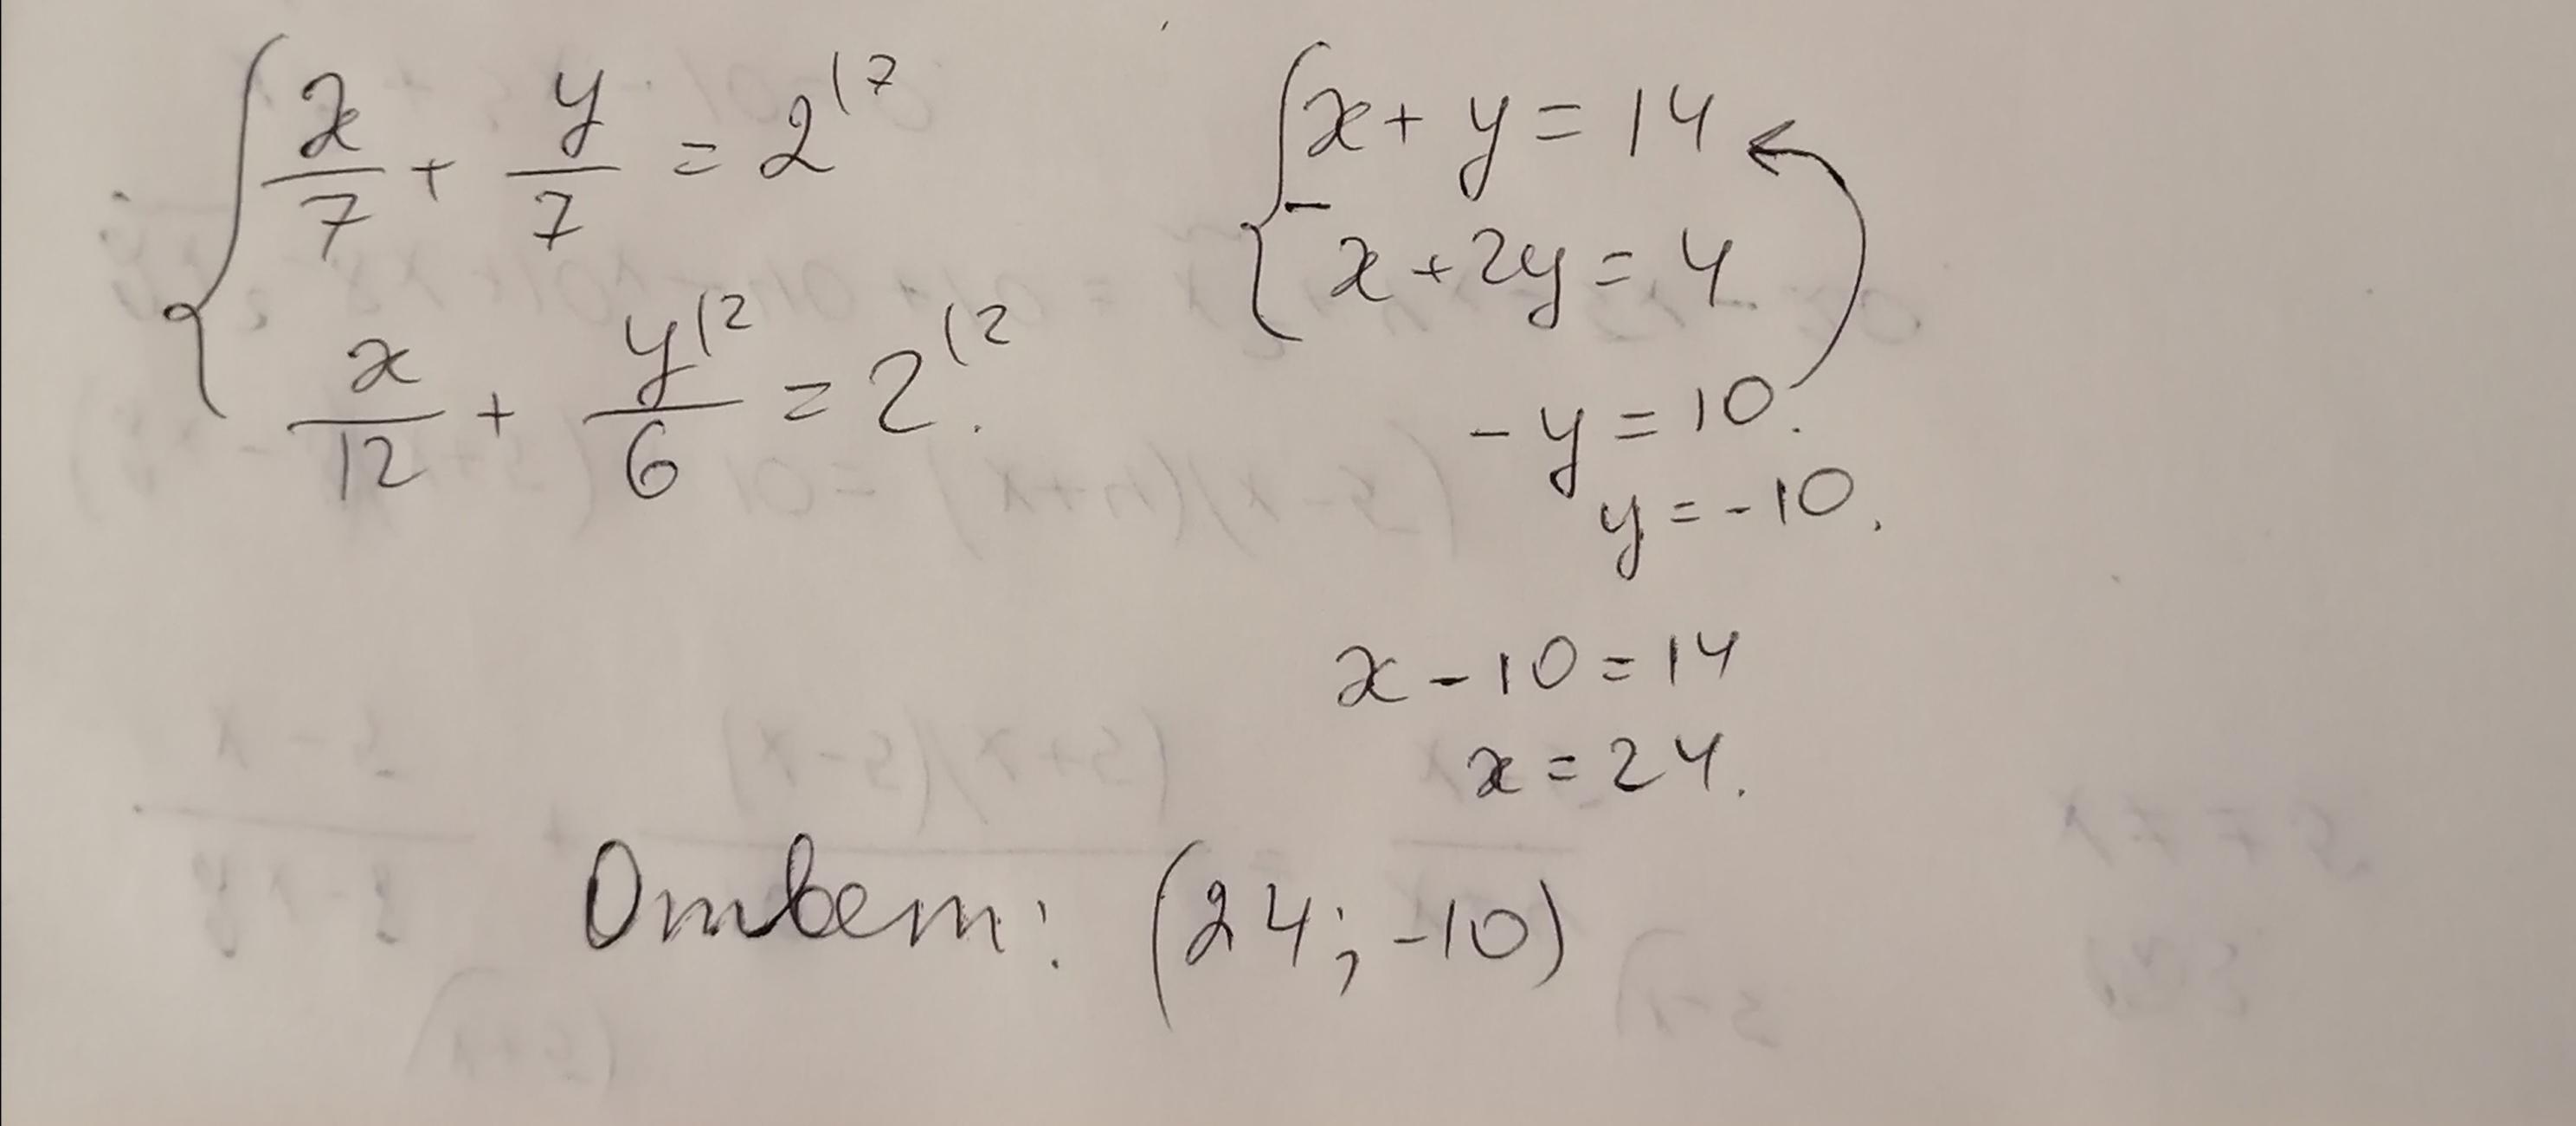 x/7 + y/7 = 2 (7
x/12 + y/6 (2 = 2 (2 .
{ x + y = 14
− x + 2y = 4
- y = 10.
y = -10.
x - 10 = 14
x = 24.
Ответ: (24; -10)